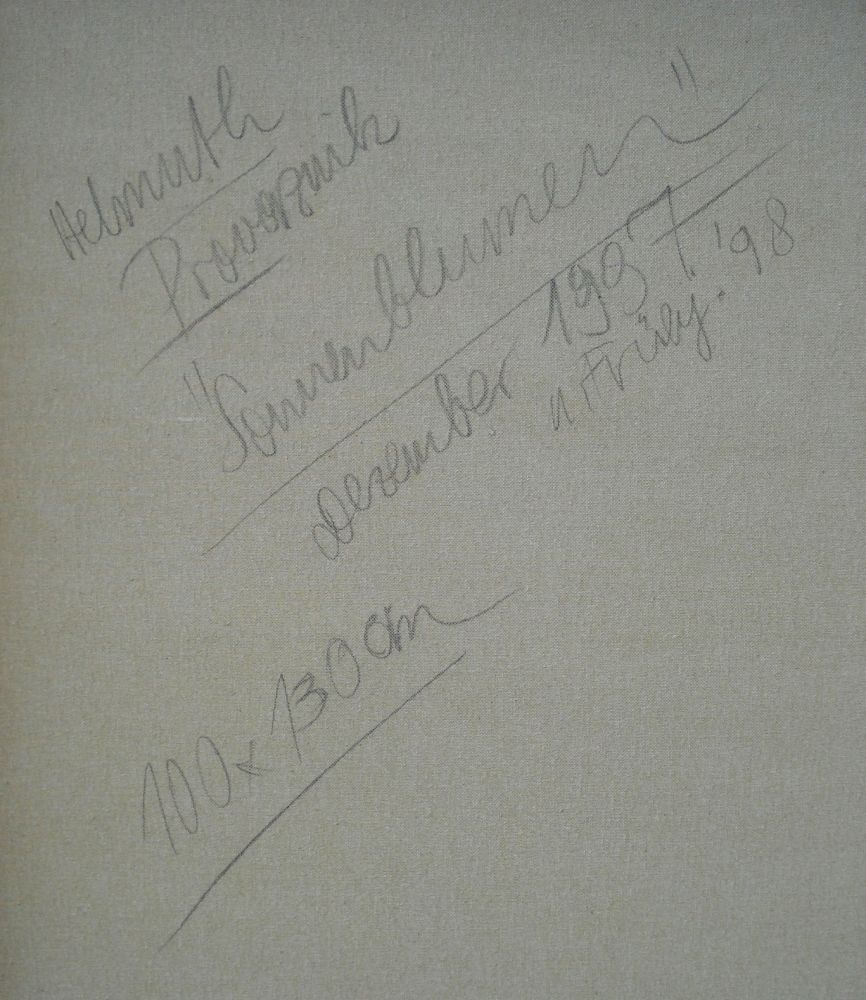 Helmuth
Provoznik
"Sonnenblumen"
Dezember 1997
u. Frühj. '98
100 x 130 cm